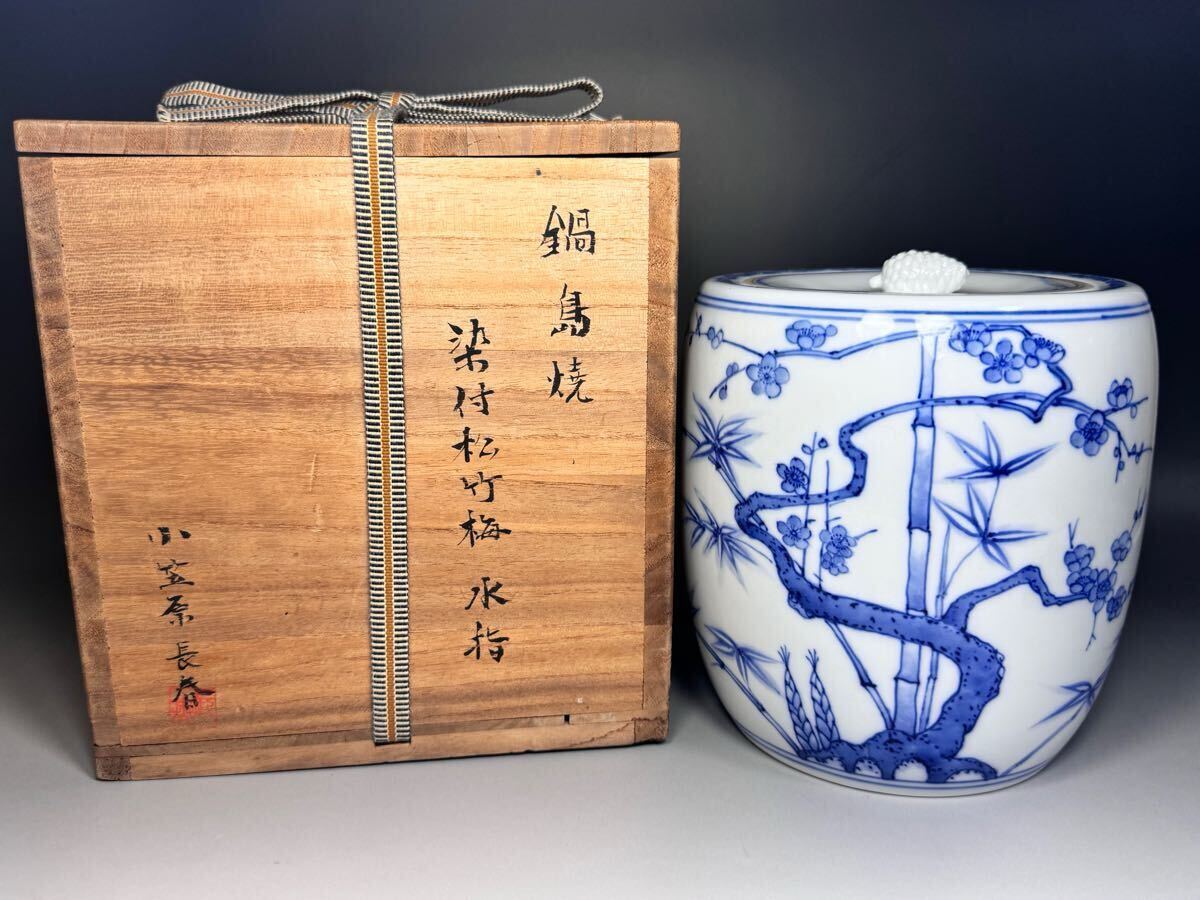 鍋島焼
染付松竹梅 水指
小笠原長春